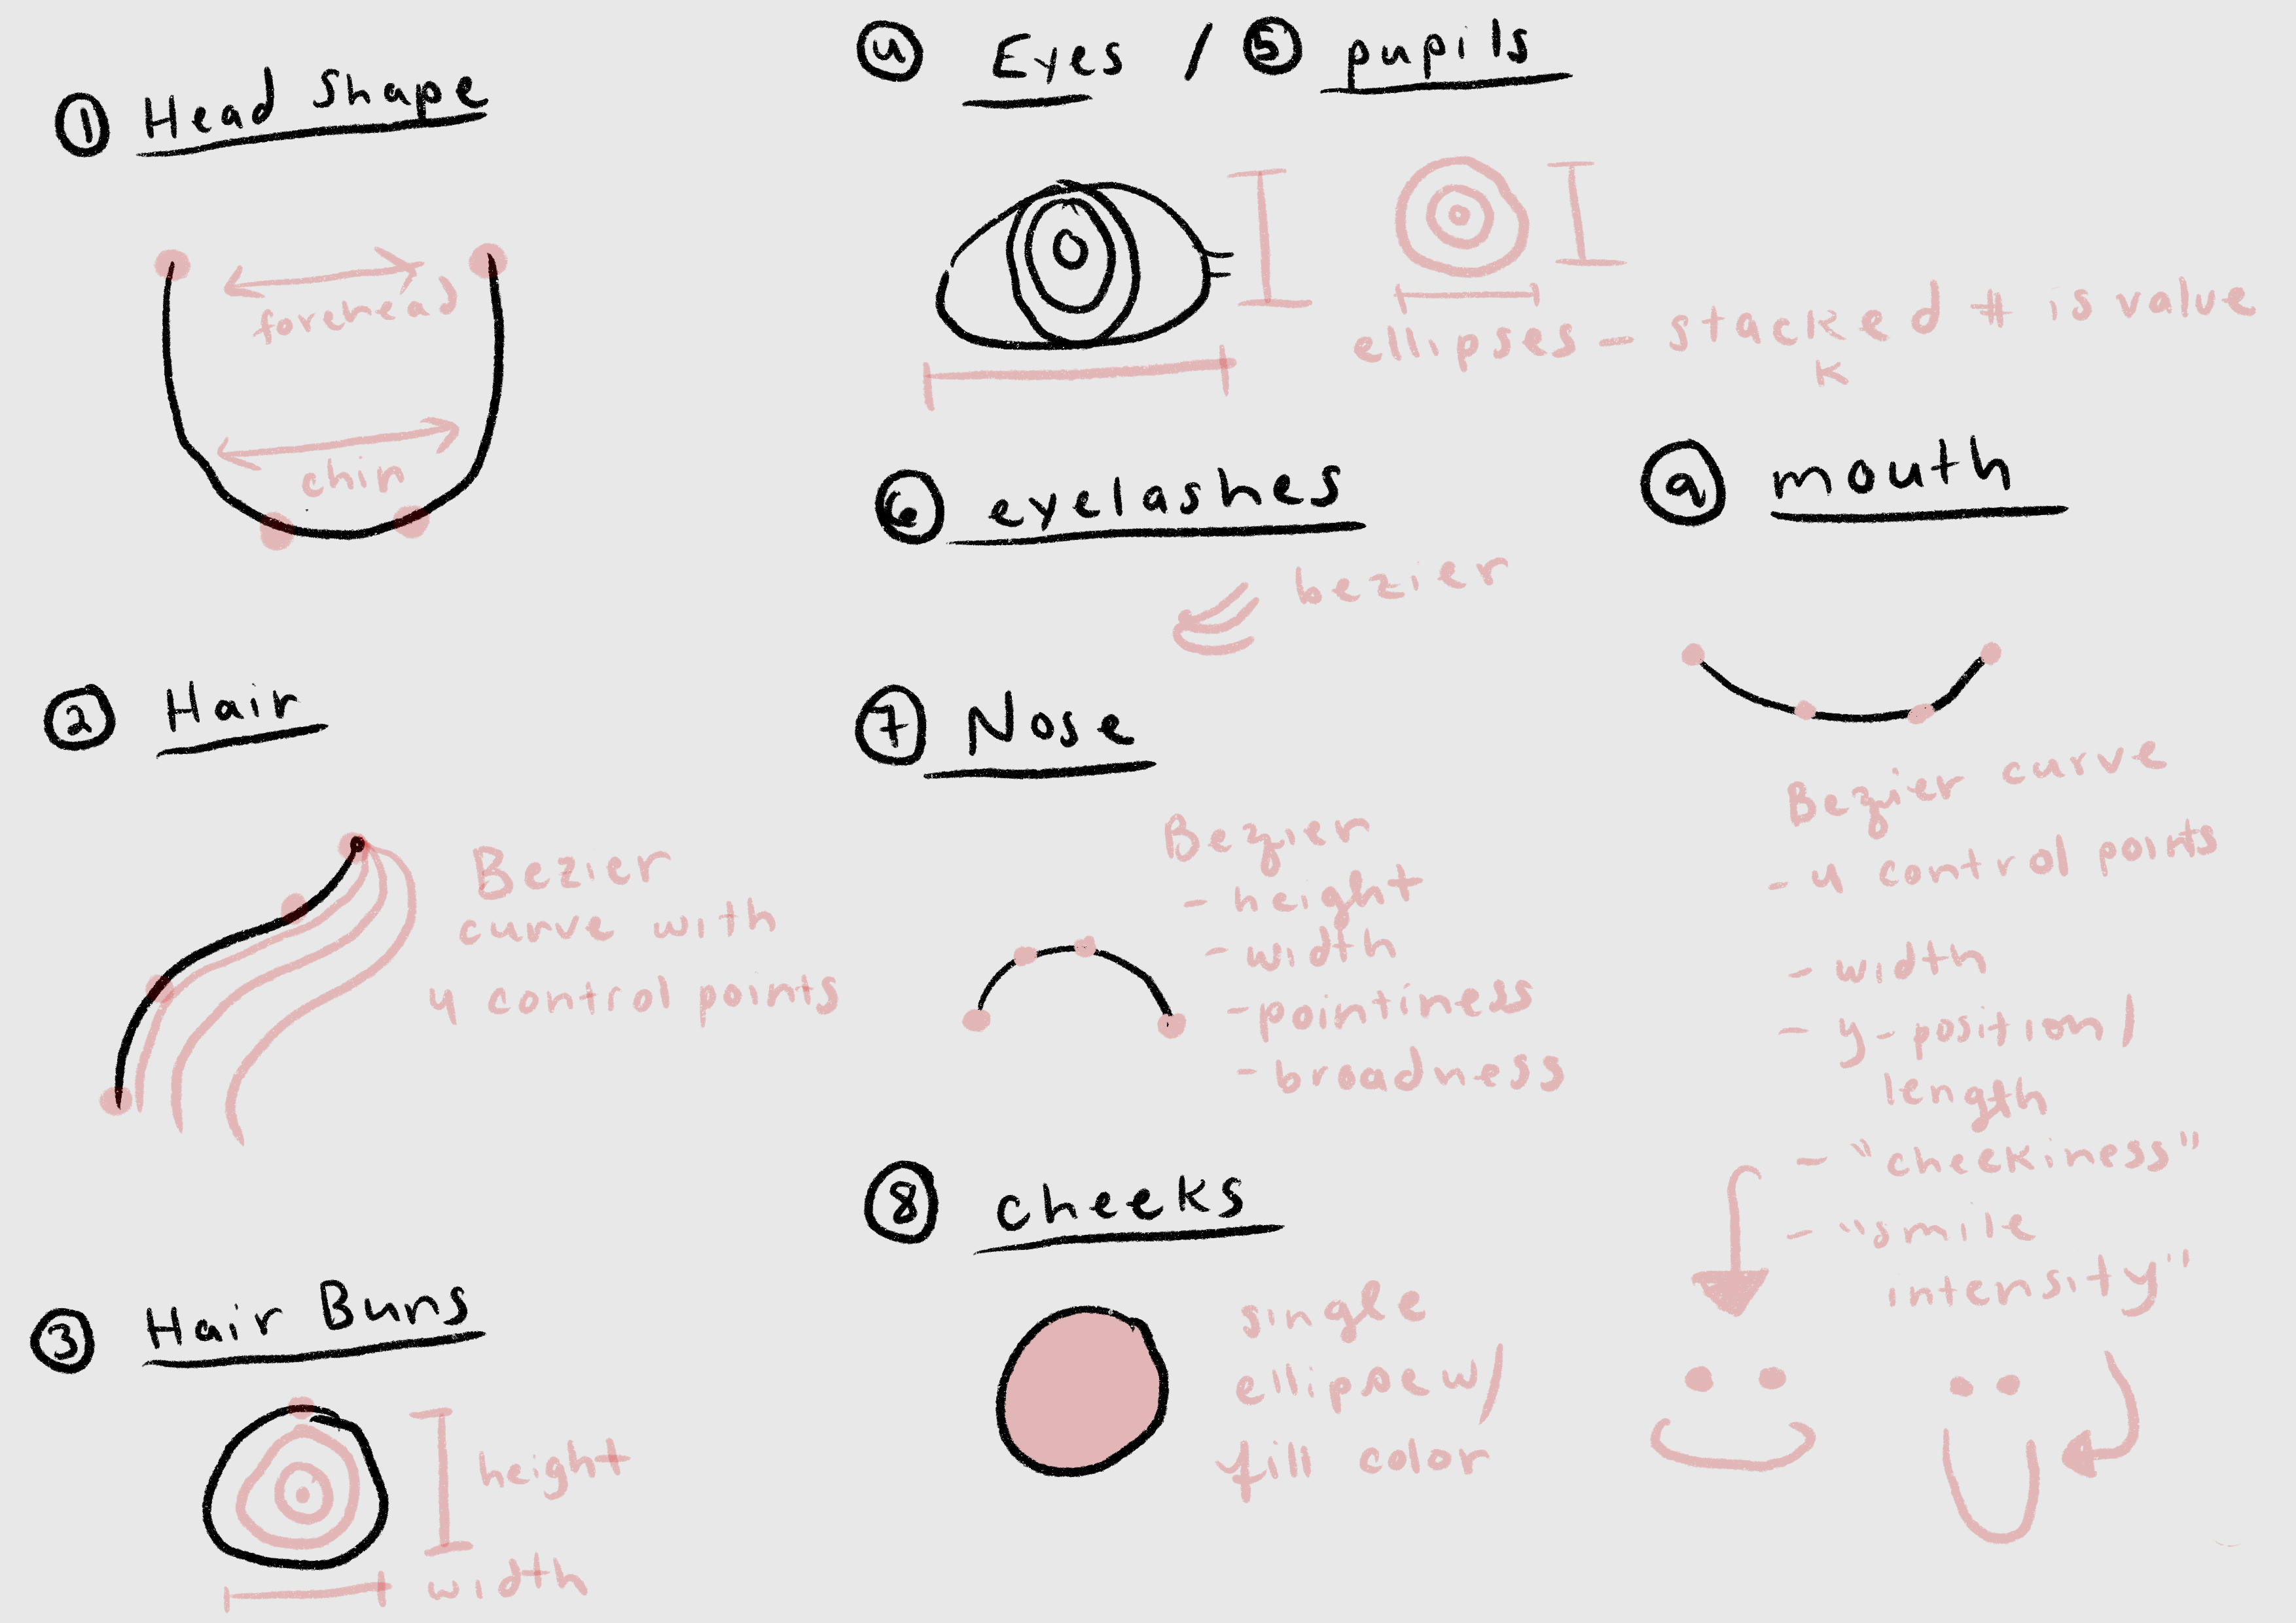 1 Head Shape
forehead
chin
2 Hair
Bezier
curve with
4 control points
3 Hair Buns
height
width
4 Eyes / 5 pupils
ellipses - stacked # is value
K
6 eyelashes
bezier
7 Nose
Bezier
- height
- width
- pointiness
- broadness
8 cheeks
single
ellipse w/
fill color
9 mouth
Bezier curve
- 4 control points
- width
- y-position/
length
- "cheekiness"
- "smile
intensity"